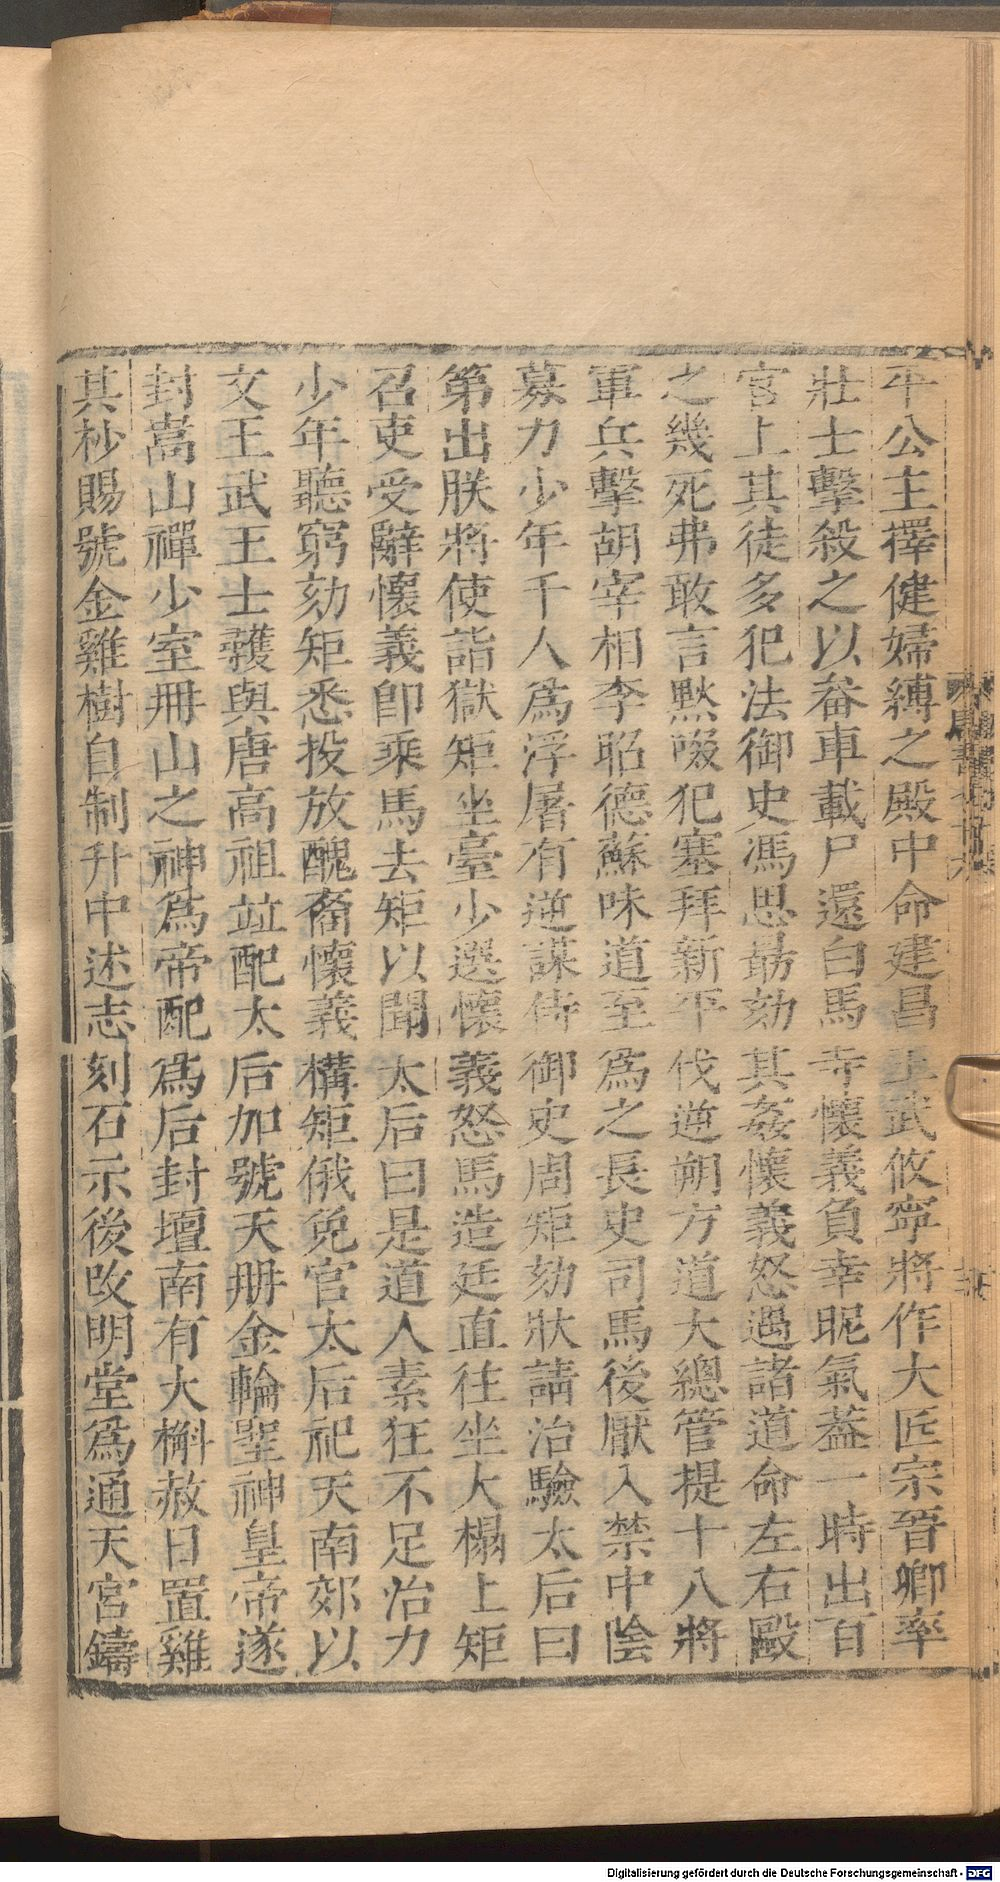 平公主擇健婦縛之殿中命建昌王武攸寧將作大匠宗晉卿率
壯士擊殺之以畚車載尸還白馬寺懷義負幸昵氣蓋一時出百
官上其徒多犯法御史馮思勗劾其姦懷義怒遇諸道命左右毆
之幾死弗敢言默啜犯塞拜新平伐逆朔方道大總管提十八將
軍兵擊胡宰相李昭德蘇味道至為之長史司馬後厭入禁中陰
募力少年千人為浮屠有逆謀侍御史周矩劾狀請治驗太后曰
第出朕將使詣獄矩坐臺少選懷義怒馬造廷直往坐大榻上矩
召吏受辭懷義卽乘馬去矩以聞太后曰是道人素狂不足治力
少年聽窮劾矩悉投放醜裔懷義構矩俄免官太后祀天南郊以
文王武王士彠與唐高祖竝配太后加號天冊金輪聖神皇帝遂
封嵩山禪少室冊山之神為帝配為后封壇南有大槲赦日置雞
其杪賜號金雞樹自制升中述志刻石示後改明堂為通天宮鑄
Digitalisierung gefördert durch die Deutsche Forschungsgemeinschaft - DFG